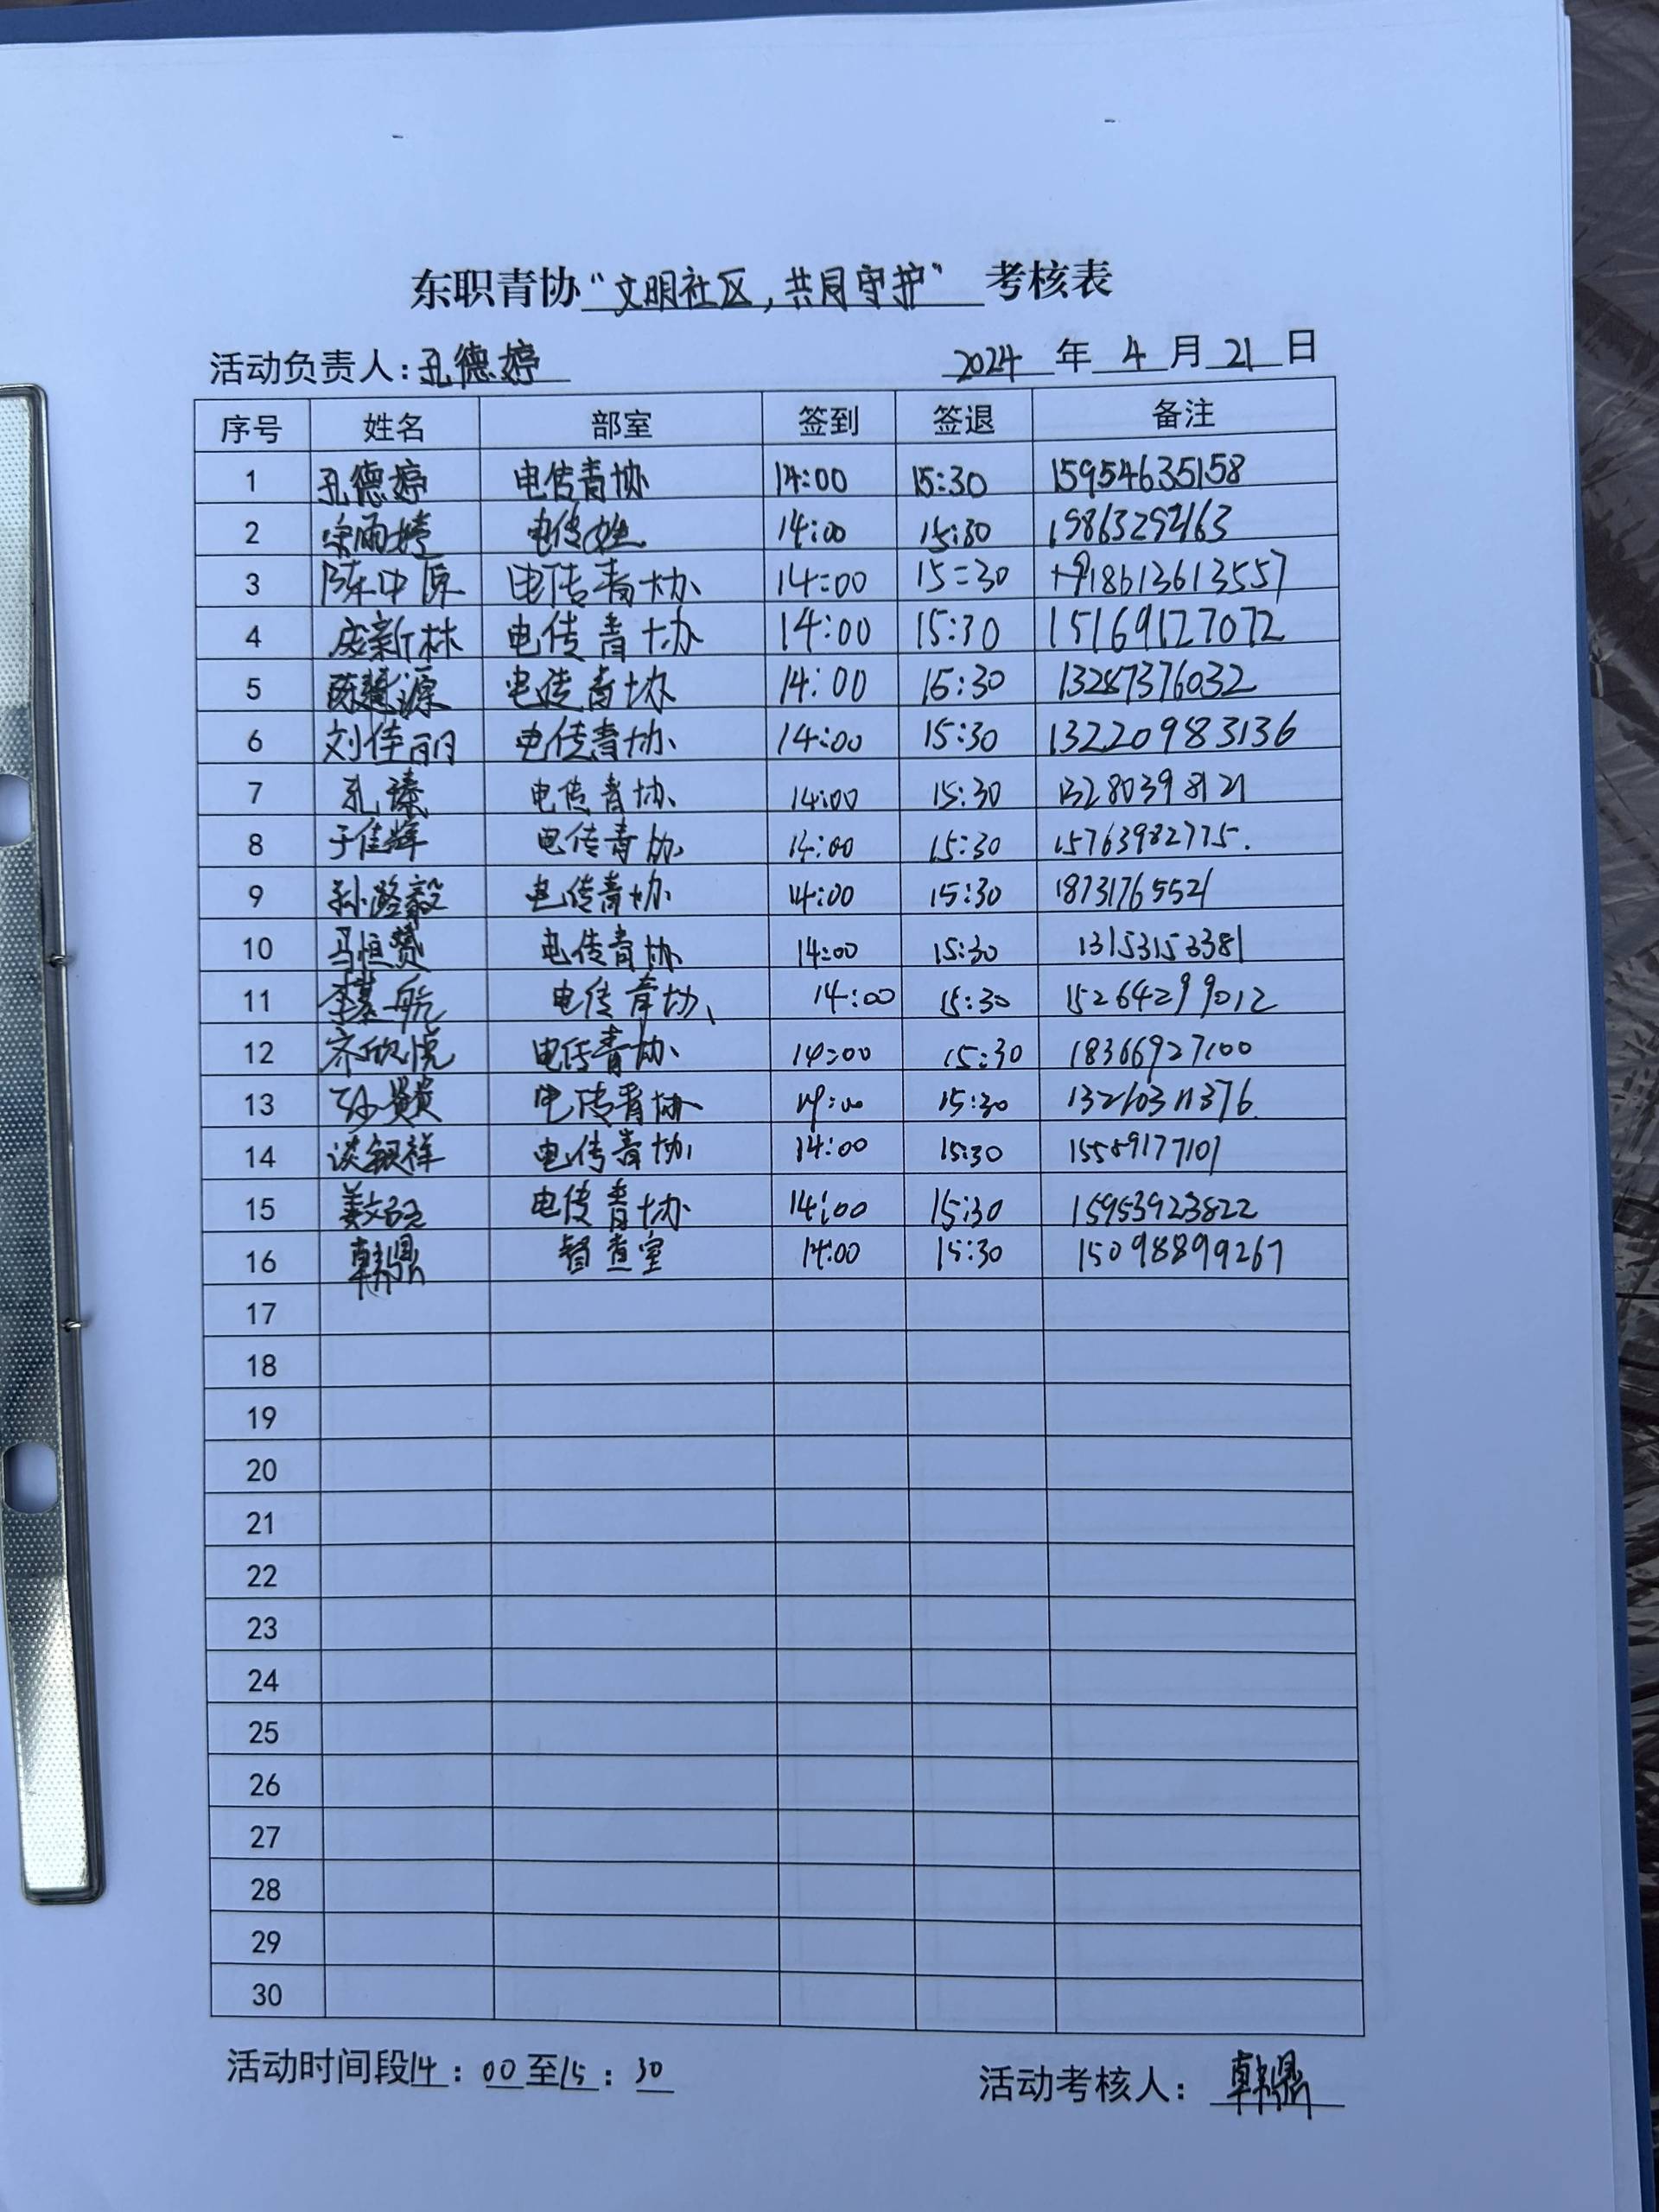 东职青协“文明社区，共同守护”考核表
活动负责人：孔德婷 2024年4月21日
序号 姓名 部室 签到 签退 备注
1 孔德婷 电传青协 14:00 15:30 15954635158
2 14:00 15:30 19863292163
3 陈中原 电传青协 14:00 15:30 18613613557
4 庞新林 电传青协 14:00 15:30 15169127072
5 陈慧源 电传青协 14:00 15:30 13287376032
6 刘佳丽 电传青协 14:00 15:30 13220983136
7 孔臻 电传青协 14:00 15:30 13280398121
8 于佳辉 电传青协 14:00 15:30 15763982775.
9 孙潞毅 电传青协 14:00 15:30 18731765521
10 马恒赞 电传青协 14:00 15:30 13153153381
11 航 电传青协 14:00 15:30 15264299012
12 齐欣悦 电传青协 14:00 15:30 18366927100
13 电传青协 14:00 15:30
14 谈银祥 电传青协 14:00 15:30 15589177101
15 电传青协 14:00 15:30 15953923822
16 韩鼎 督查室 14:00 15:30 15098899267
17
18
19
20
21
22
23
24
25
26
27
28
29
30
活动时间段14:00至15:30 活动考核人：韩鼎